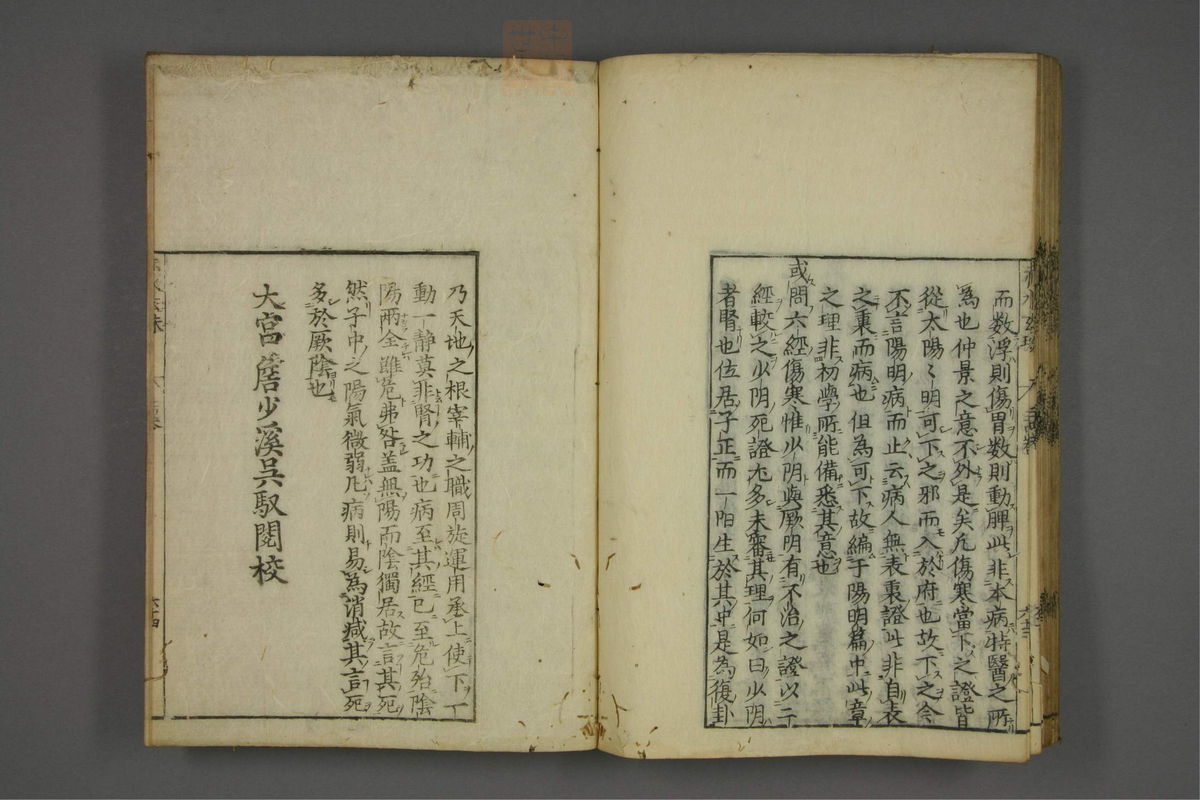 而数浮則傷胃数則動脾此非本病特醫之所
為也仲景之意不外是矣凡傷寒當下之證皆
從太陽〻明可下之邪而入於府也故下之今
不言陽明病而止云病人無表裏證此非自表
之裏而病也但為可下故編于陽明篇中此章
之理非初學所能備悉其意也
或問六經傷寒惟少阴與厥阴有不治之證以二
經較之少阴死證尤多未審其理何如曰少阴
者腎也位居子正而一阳生於其中是為復卦
乃天地之根宰輔之職周旋運用承上使下一
動一静莫非腎之功也病至其經已至危殆陰
陽兩全雖危弗咎盖無陽而陰獨居故言其死
然子中之陽氣微弱凡病則易為消减其言死
多於厥陰也
大宮詹少溪吳馭閱校
六十四